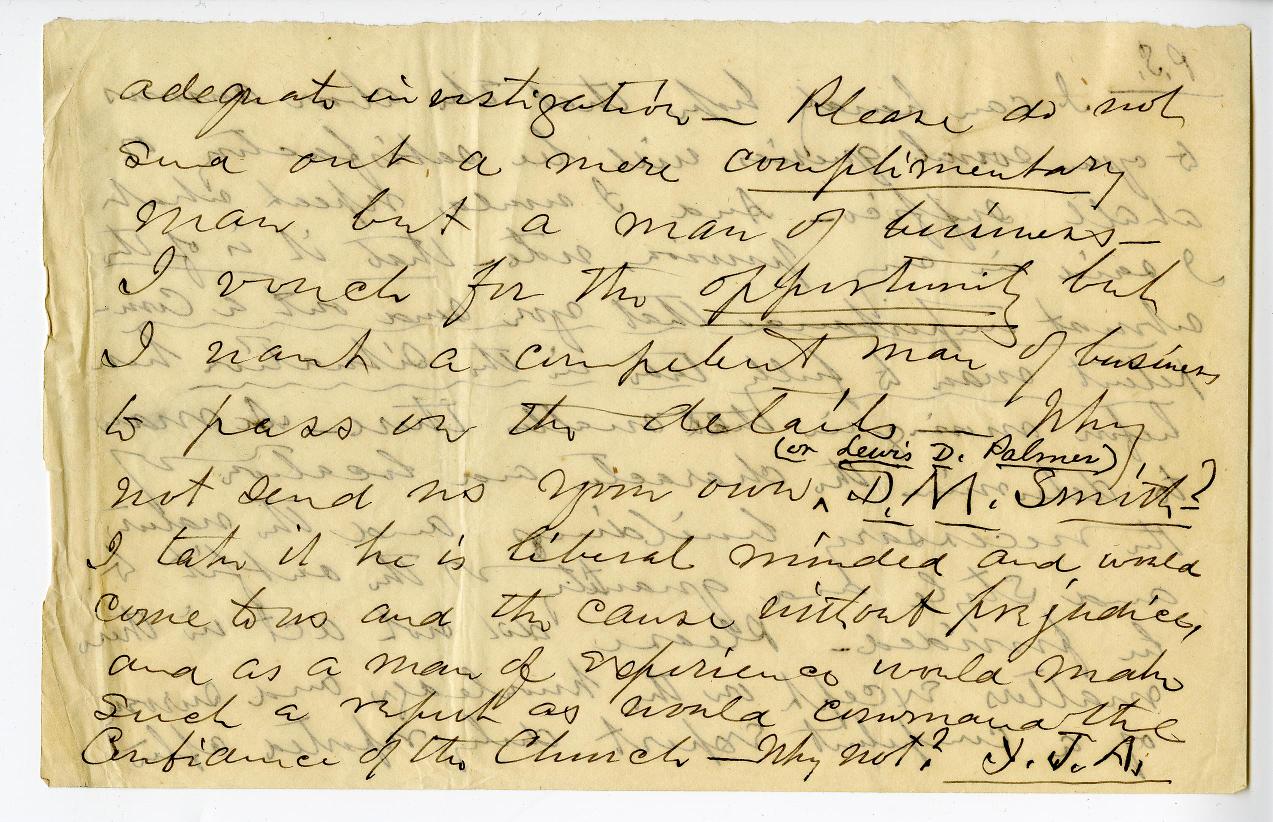 adequate investigation — Please do not
send out a mere complimentary
man but a man of business —
I vouch for the opportunity but
I want a competent man of business
to pass on the details — Why
(or Lewis D. Palmer)
not send us your own ‸ D. M. Smith?
I take it he is liberal minded and would
come to us and the cause without prejudice,
and as a man of experience would make
such a report as would command the
Confidence of the Church — Why not? Y. J. A.